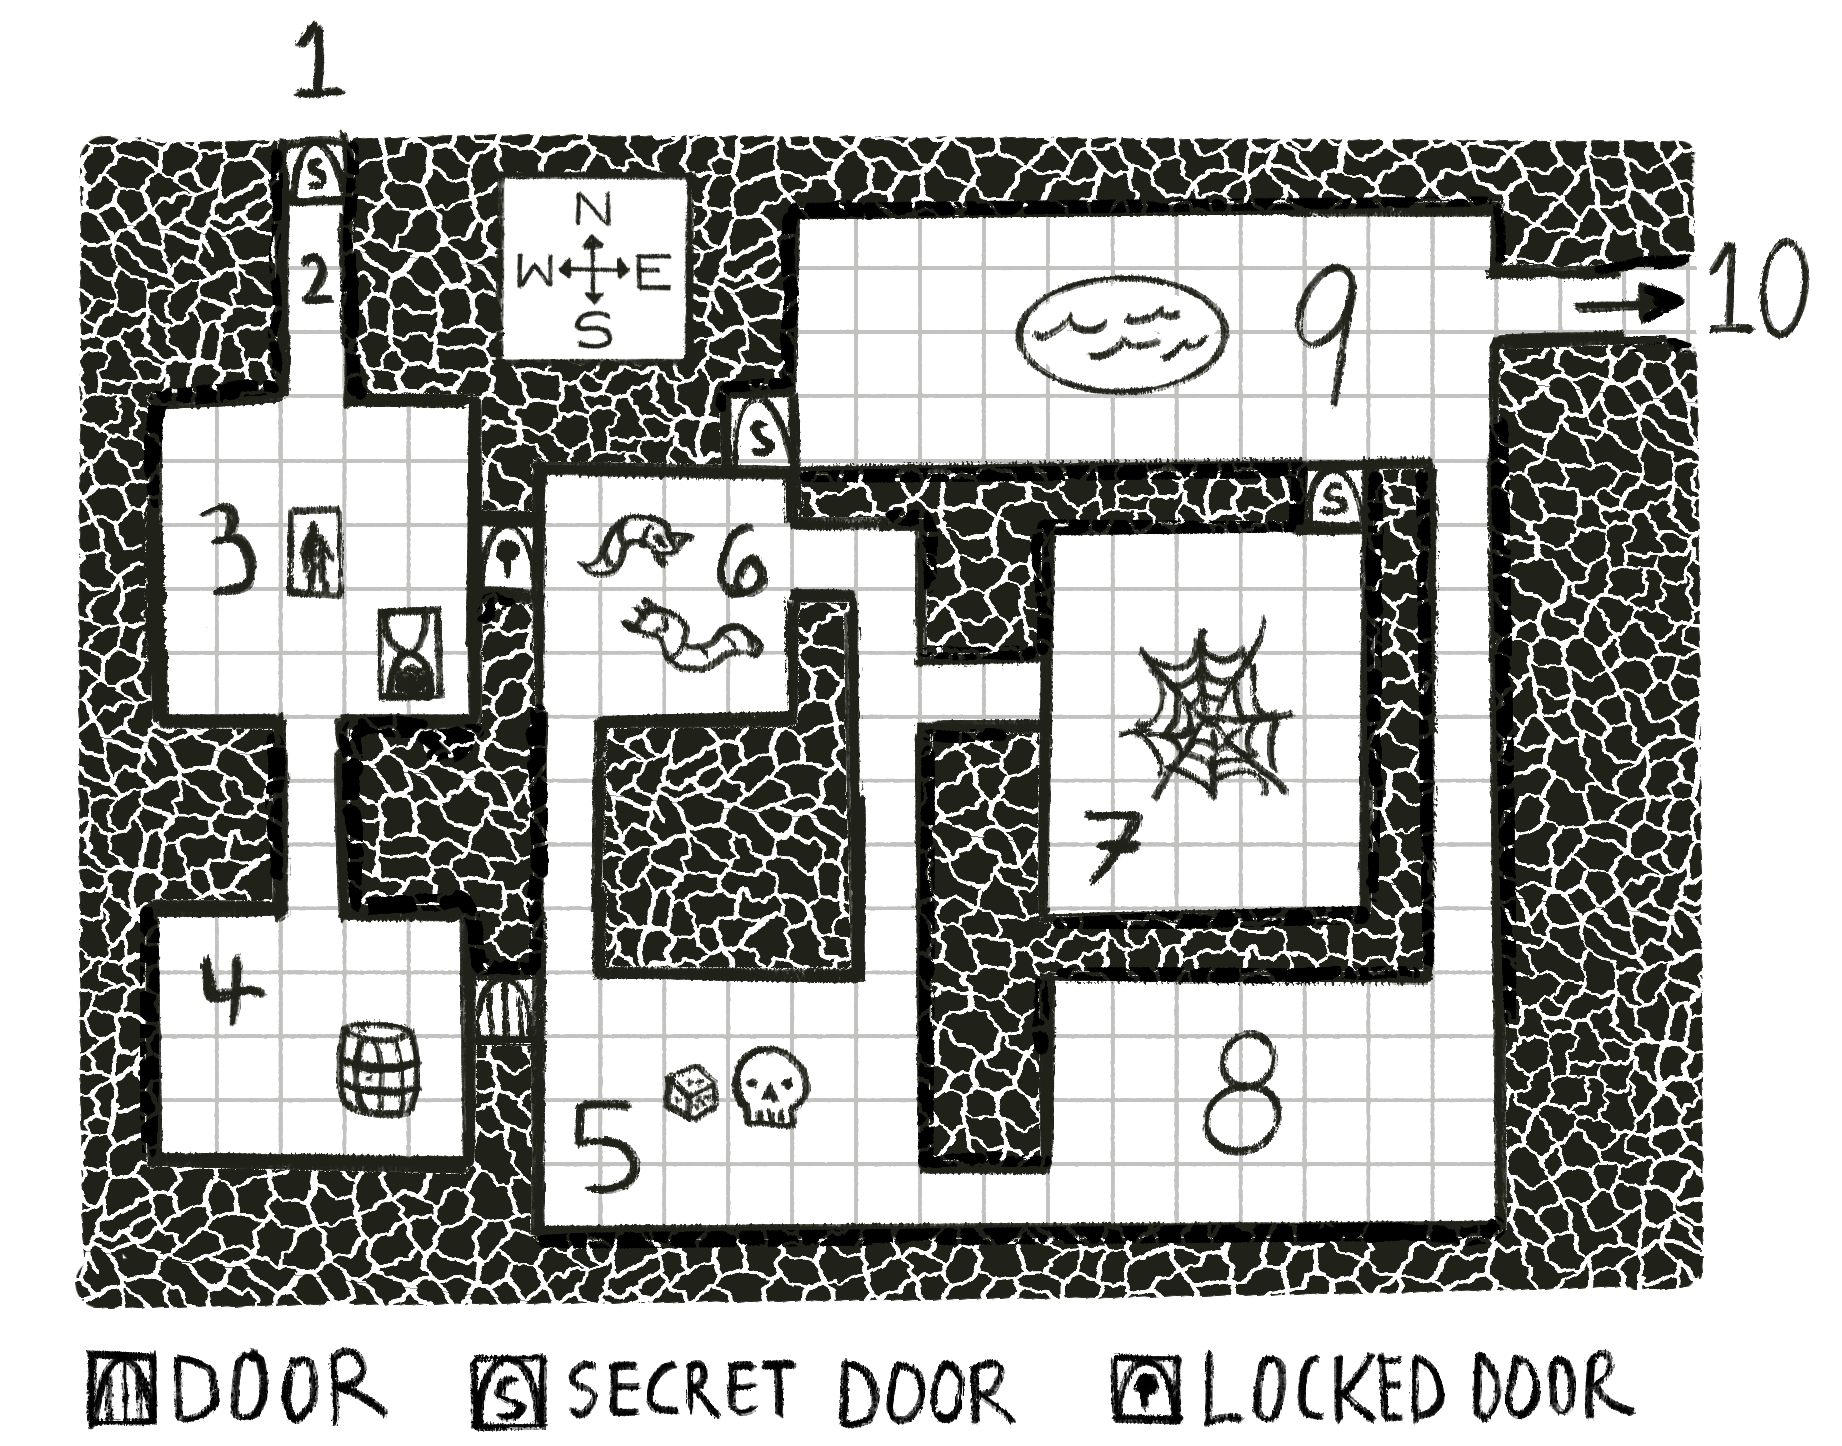 1
S
2
N
W E
S
10
9
S
S
3
6
7
4
8
5
DOOR S SECRET DOOR LOCKED DOOR